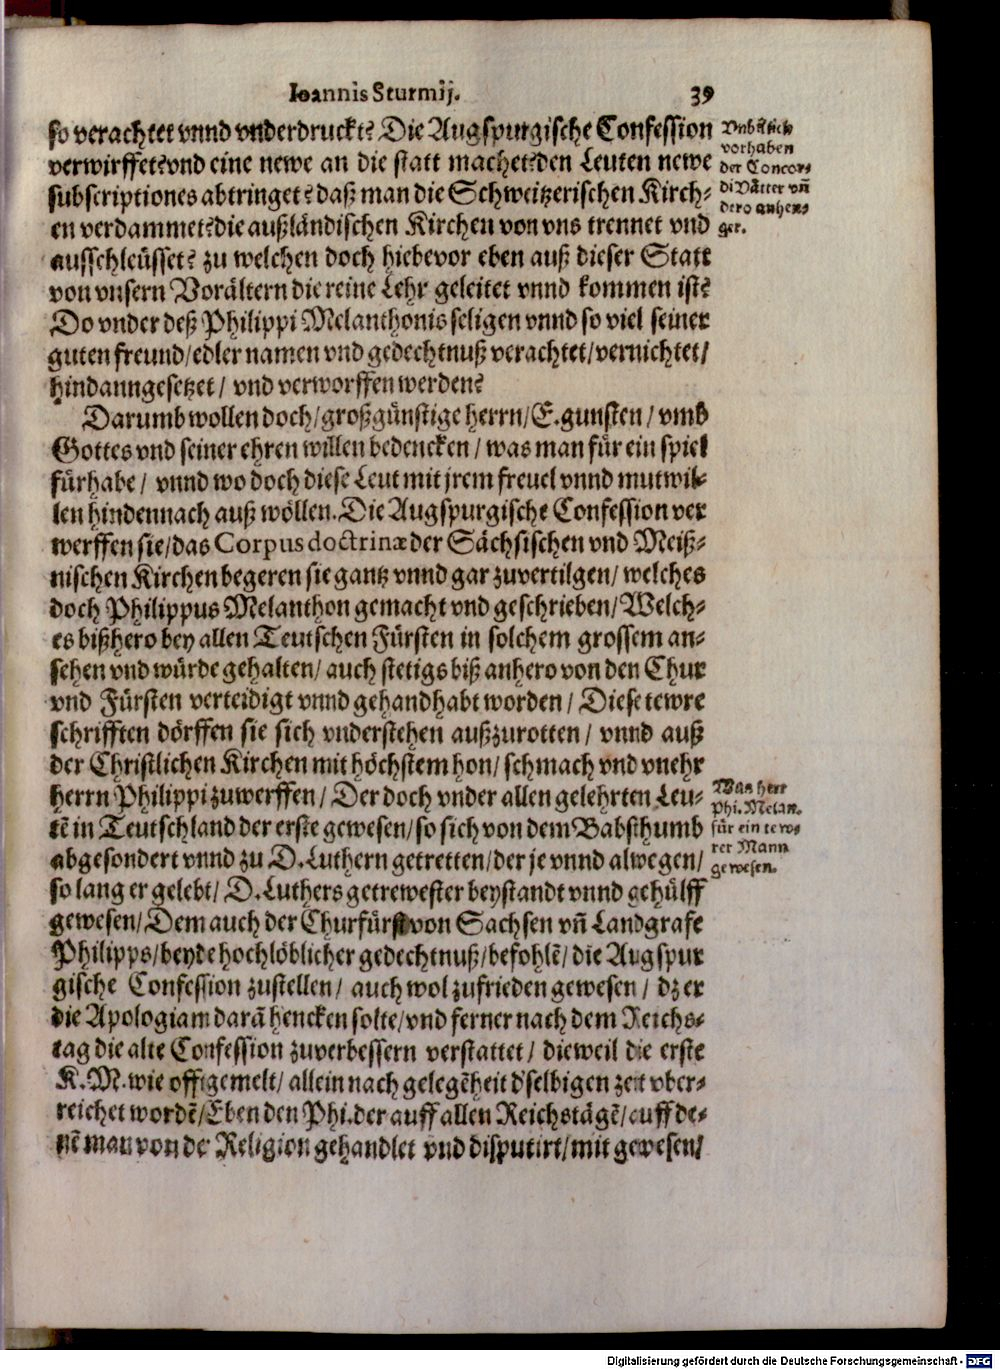 Ioannis Sturmij. 39
so verachtet vnnd vnderdruckt? Die Augspurgische Confession
verwirffet? vnd eine newe an die statt machet? den Leuten newe
subscriptiones abtringet? daß man die Schweitzerischen Kirch-
en verdammet? die außländischen Kirchen von vns trennet vnd
ausschleüsset? zu welchen doch hiebevor eben auß dieser Statt
von vnsern Vorältern die reine Lehr geleitet vnnd kommen ist?
Do vnder deß Philippi Melanthonis seligen vnnd so viel seiner
guten freund/ edler namen vnd gedechtnuß verachtet/ vernichtet/
hindanngesetzet/ vnd verworffen werden?
Vnbillich
vorhaben
der Concor-
di Vätter vñ
dero anhen-
ger.
Darumb wollen doch/ großgünstige herrn/ E. gunsten/ vmb
Gottes vnd seiner ehren willen bedencken/ was man für ein spiel
fürhabe/ vnnd wo doch diese Leut mit jrem freuel vnnd mutwil-
len hindennach auß wöllen. Die Augspurgische Confession ver
werffen sie/ das Corpus doctrinæ der Sächsischen vnd Meiß-
nischen Kirchen begeren sie gantz vnnd gar zuvertilgen/ welches
doch Philippus Melanthon gemacht vnd geschrieben/ Welch-
es bißhero bey allen Teutschen Fürsten in solchem grossem an-
sehen vnd würde gehalten/ auch stetigs biß anhero von den Chur
vnd Fürsten verteidigt vnnd gehandhabt worden/ Diese tewre
schrifften dörffen sie sich vnderstehen außzurotten/ vnnd auß
der Christlichen Kirchen mit höchstem hon/ schmach vnd vnehr
herrn Philippi zuwerffen/ Der doch vnder allen gelehrten Leu-
tē in Teutschland der erste gewesen/ so sich von dem Babsthumb
abgesondert vnnd zu D. Luthern getretten/ der je vnnd alwegen/
so lang er gelebt/ D. Luthers getrewester beystandt vnnd gehülff
gewesen/ Dem auch der Churfürst von Sachsen vñ Landgrafe
Philipps/ beyde hochlöblicher gedechtnuß/ befohlē/ die Augspur
gische Confession zustellen/ auch wol zufrieden gewesen/ dz er
die Apologiam darā hencken solte/ vnd ferner nach dem Reichs-
tag die alte Confession zuverbessern verstattet/ dieweil die erste
K. M. wie offt gemelt/ allein nach gelegēheit d'selbigen zeit vber-
reichet wordē/ Eben den Phi. der auff allen Reichstägē/ auff de-
nē man von der Religion gehandlet vnd disputirt/ mit gewesen/
Was herr
Phi. Melan.
für ein tew-
rer Mann
gewesen.
Digitalisierung gefördert durch die Deutsche Forschungsgemeinschaft - DFG